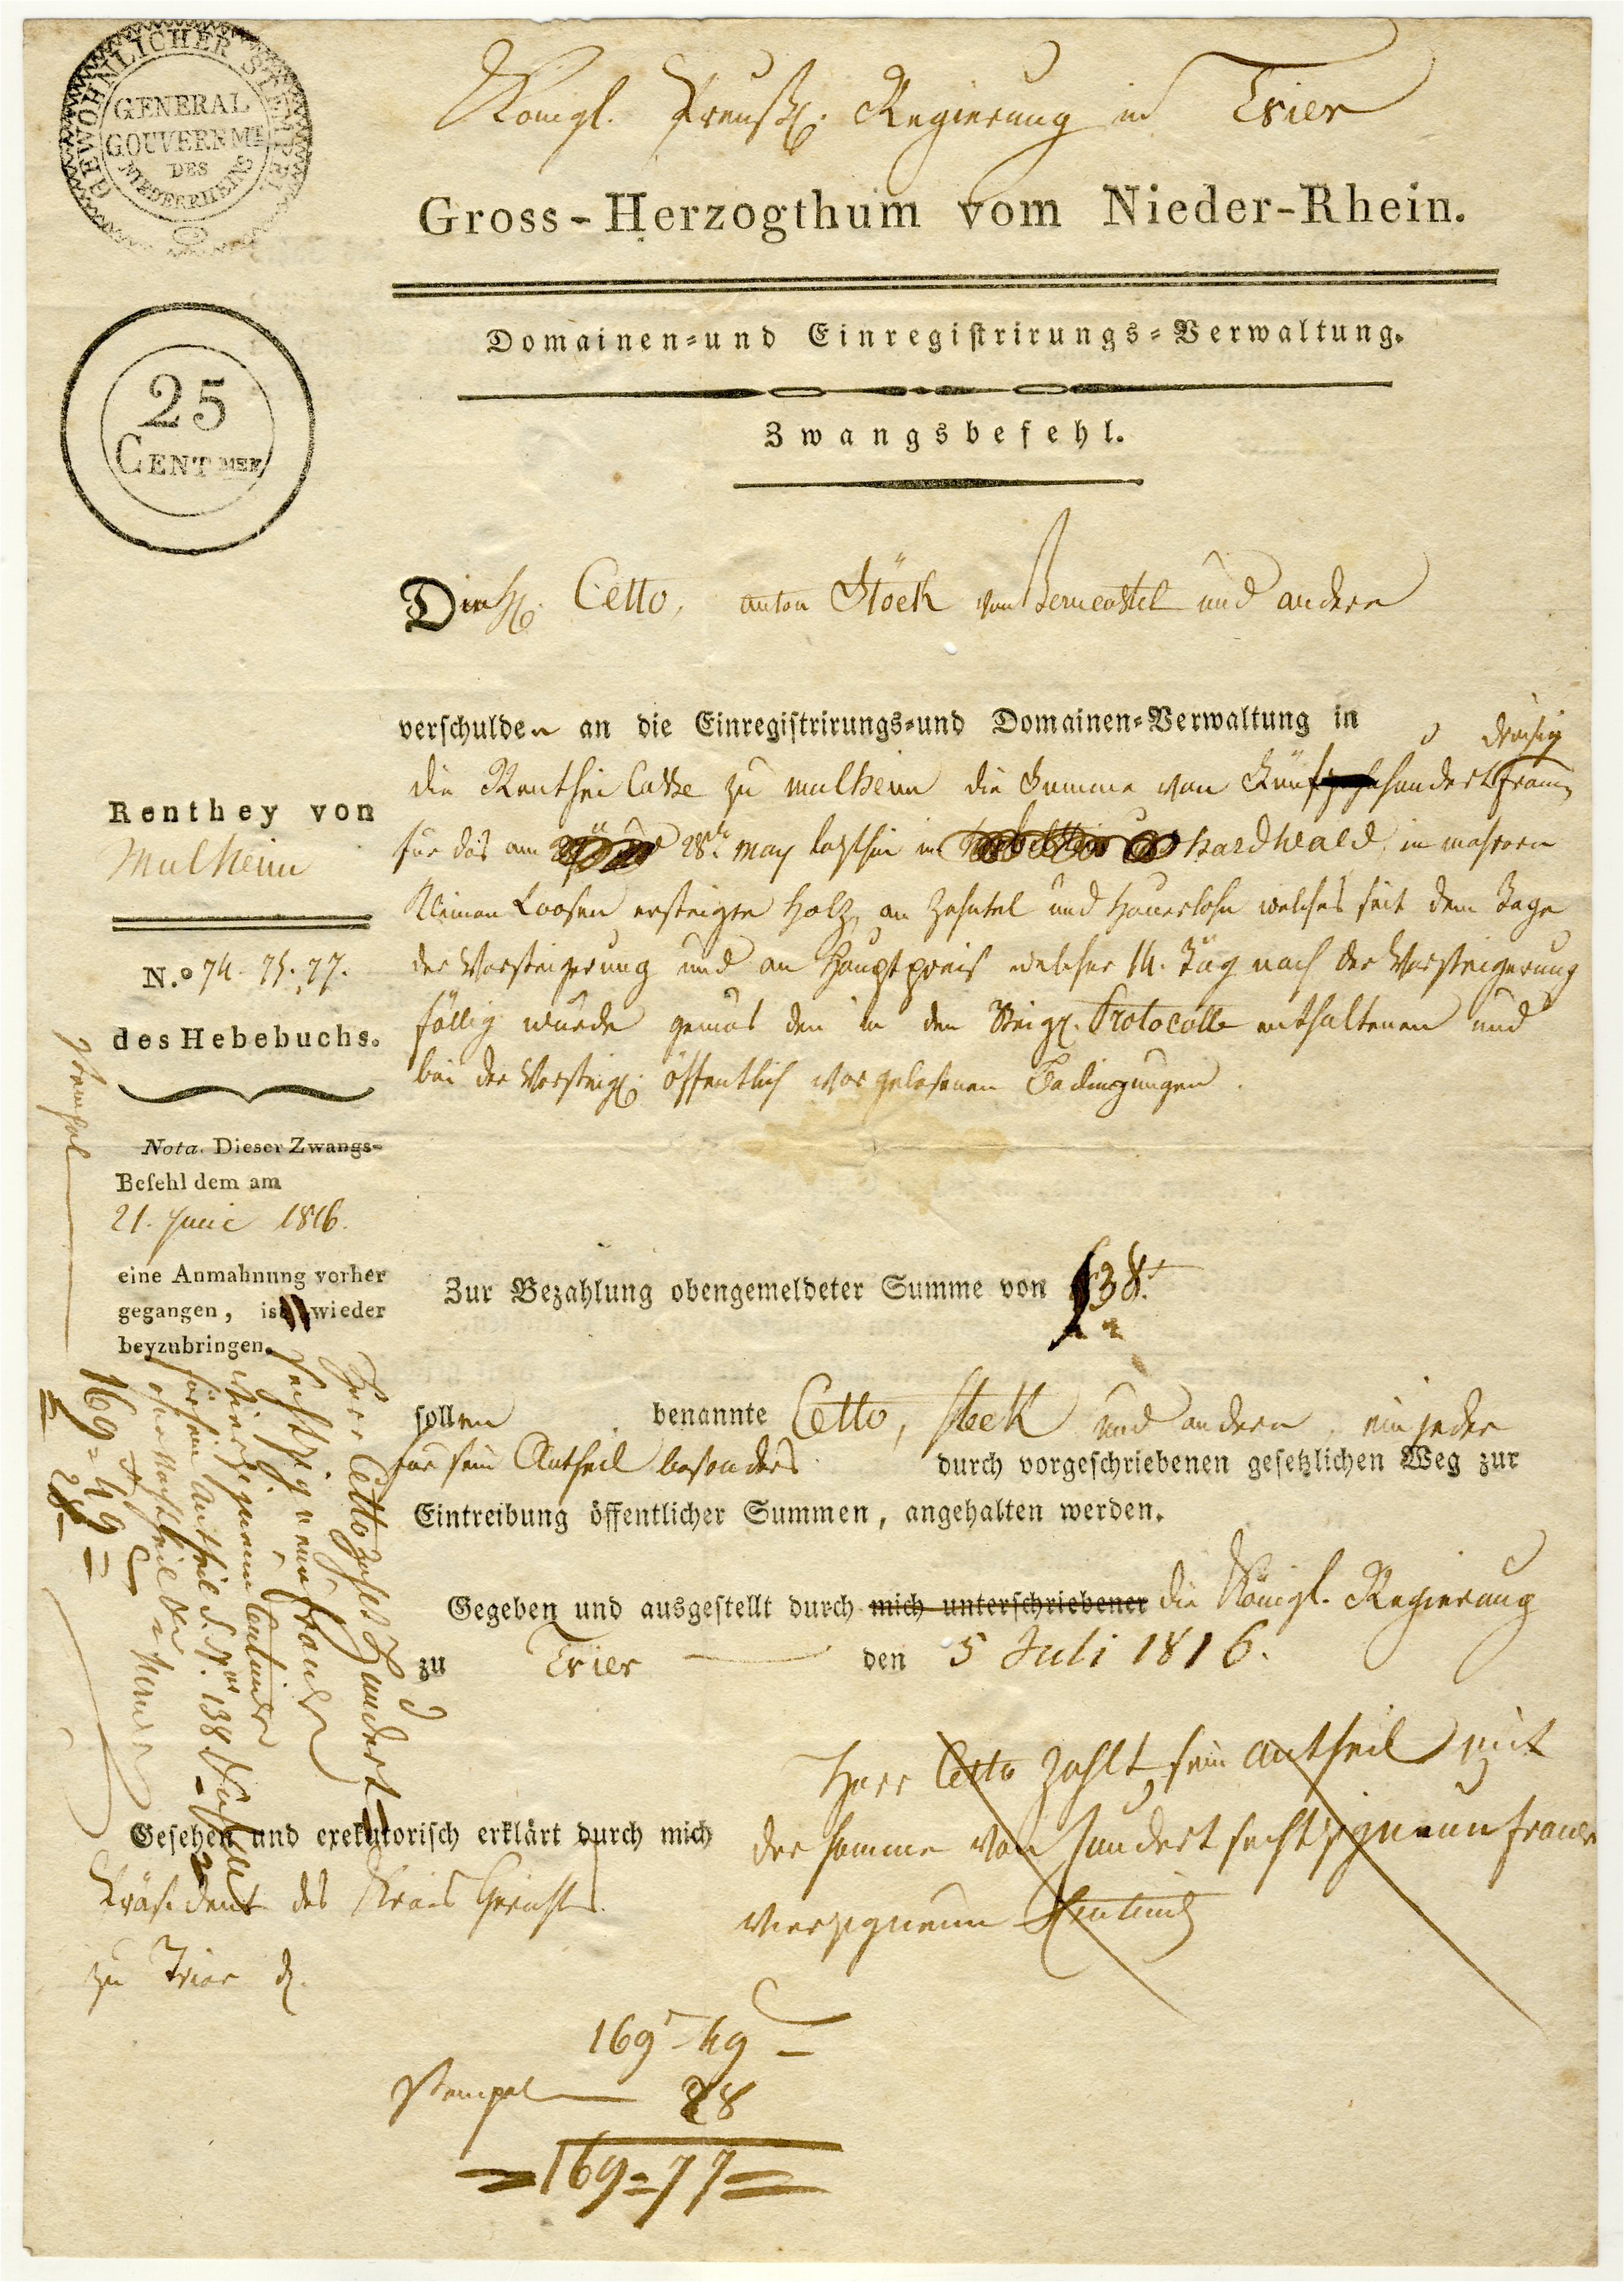 GEWÖHNLICHER STEMPEL
GENERAL
GOUVERNEMT
DES
NIEDERRHEINS
Königl. Preuß. Regierung in Trier
Gross-Herzogthum vom Nieder-Rhein.
Domainen-und Einregistrirungs-Verwaltung.
25
CENTIMEN
Zwangsbefehl.
Die H. Cetto, anton Stöck von Berncastel und andere
verschulden an die Einregistrirungs-und Domainen-Verwaltung in
dreisig
die Renthei Casse zu mulheim die Summe von Fünf hundert franc,
für das am 28t. may letzthin im hardwald, in mehrern
Kleinen Loosen ersteigte Holz, an Zehntel und Hauerlohn welches seit dem Tage
der Versteigerung und an Hauptpreis welcher 14. Täg nach der Versteigerung
fällig wurde gemäs den in den Steig. Protocolle enthaltenen und
bei der Versteig. öffentlich vorgelesenen Bedingungen.
Renthey von
Mulheim
N.o 74. 75. 77.
des Hebebuchs.
Stempel
Nota. Dieser Zwangs-
Befehl dem am
21. Junie 1816.
eine Anmahnung vorher
gegangen, ist wieder
beyzubringen.
Zur Bezahlung obengemeldeter Summe von 538.
sollen benannte Cetto, Stöck und andere, ein jeder
für sein Antheil besonders durch vorgeschriebenen gesetzlichen Weg zur
Eintreibung öffentlicher Summen, angehalten werden.
Gegeben und ausgestellt durch mich unterschriebener die Königl. Regierung
zu Trier den 5 Juli 1816.
Herr Cetto zahlet Hundert
sechszig neun Franck
vierzig neun Centimes
für sein Antheil
169=49=
28
Herr Cetto zahlt sein Antheil mit
der somme von hundert sechszigneun francs
vierzigneun Centims
Gesehen und exekutorisch erklärt durch mich
Präsident des Kreis Gerichts
zu Trier
169 - 49
Stempel 28
=169=77=